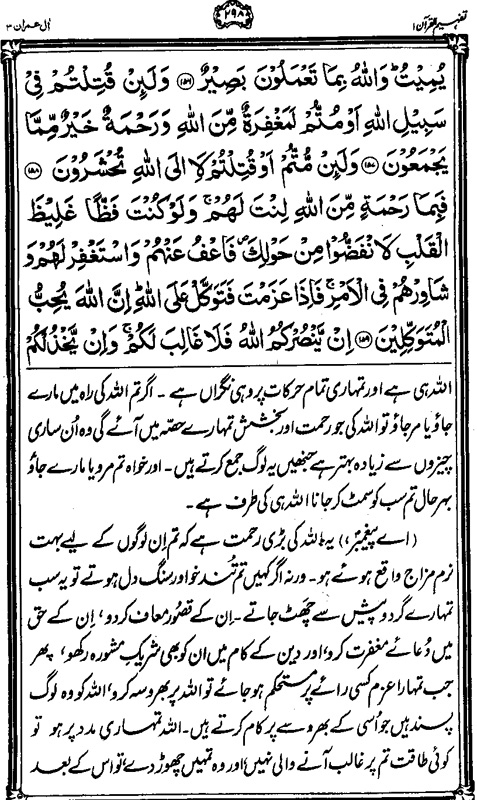 تفہیم القرآن ۱
۲۹۸
اٰل عمران ۳
يُمِيْتُ ؕ وَاللّٰهُ بِمَا تَعْمَلُوْنَ بَصِيْرٌ ﴿۱۵۶﴾ وَلَىِٕنْ قُتِلْتُمْ فِىْ
سَبِيْلِ اللّٰهِ اَوْ مُتُّمْ لَمَغْفِرَةٌ مِّنَ اللّٰهِ وَرَحْمَةٌ خَيْرٌ مِّمَّا
يَجْمَعُوْنَ ﴿۱۵۷﴾ وَلَىِٕنْ مُّتُّمْ اَوْ قُتِلْتُمْ لَاۡ اِلَى اللّٰهِ تُحْشَرُوْنَ ﴿۱۵۸﴾
فَبِمَا رَحْمَةٍ مِّنَ اللّٰهِ لِنْتَ لَهُمْ ۚ وَلَوْ كُنْتَ فَظًّا غَلِيْظَ
الْقَلْبِ لَا نْفَضُّوْا مِنْ حَوْلِكَ ۪ فَاعْفُ عَنْهُمْ وَاسْتَغْفِرْ لَهُمْ وَ
شَاوِرْهُمْ فِى الْاَمْرِ ۚ فَاِذَا عَزَمْتَ فَتَوَكَّلْ عَلَى اللّٰهِ ؕ اِنَّ اللّٰهَ يُحِبُّ
الْمُتَوَكِّلِيْنَ ﴿۱۵۹﴾ اِنْ يَّنْصُرْكُمُ اللّٰهُ فَلَا غَالِبَ لَكُمْ ۚ وَاِنْ يَّخْذُلْكُمْ
اللہ ہی ہے اور تمہاری تمام حرکات پر وہی نگراں ہے ۔ اگر تم اللہ کی راہ میں مارے
جاؤ یا مر جاؤ تو اللہ کی جو رحمت اور بخشش تمہارے حصّہ میں آئے گی وہ اُن ساری
چیزوں سے زیادہ بہتر ہے جنھیں یہ لوگ جمع کرتے ہیں ۔ اور خواہ تم مرو یا مارے جاؤ
بہرحال تم سب کو سمٹ کر جانا اللہ ہی کی طرف ہے ۔
(اے پیغمبرؐ،) یہ اللہ کی بڑی رحمت ہے کہ تم اِن لوگوں کے لیے بہت
نرم مزاج واقع ہوئے ہو ۔ ورنہ اگر کہیں تم تُند خو اور سنگ دل ہوتے تو یہ سب
تمہارے گردوپیش سے چَھٹ جاتے ۔ اِن کے قصُور معاف کردو، اِن کے حق
میں دُعائے مغفرت کرو، اور دین کے کام میں ان کو بھی شریکِ مشورہ رکھو، پھر
جب تمہارا عزم کسی رائے پر مستحکم ہو جائے تو اللہ پر بھروسہ کرو، اللہ کو وہ لوگ
پسند ہیں جو اُسی کے بھروسے پر کام کرتے ہیں ۔ اللہ تمہاری مدد پر ہو تو
کوئی طاقت تم پر غالب آنے والی نہیں، اور وہ تمہیں چھوڑ دے تو اس کے بعد